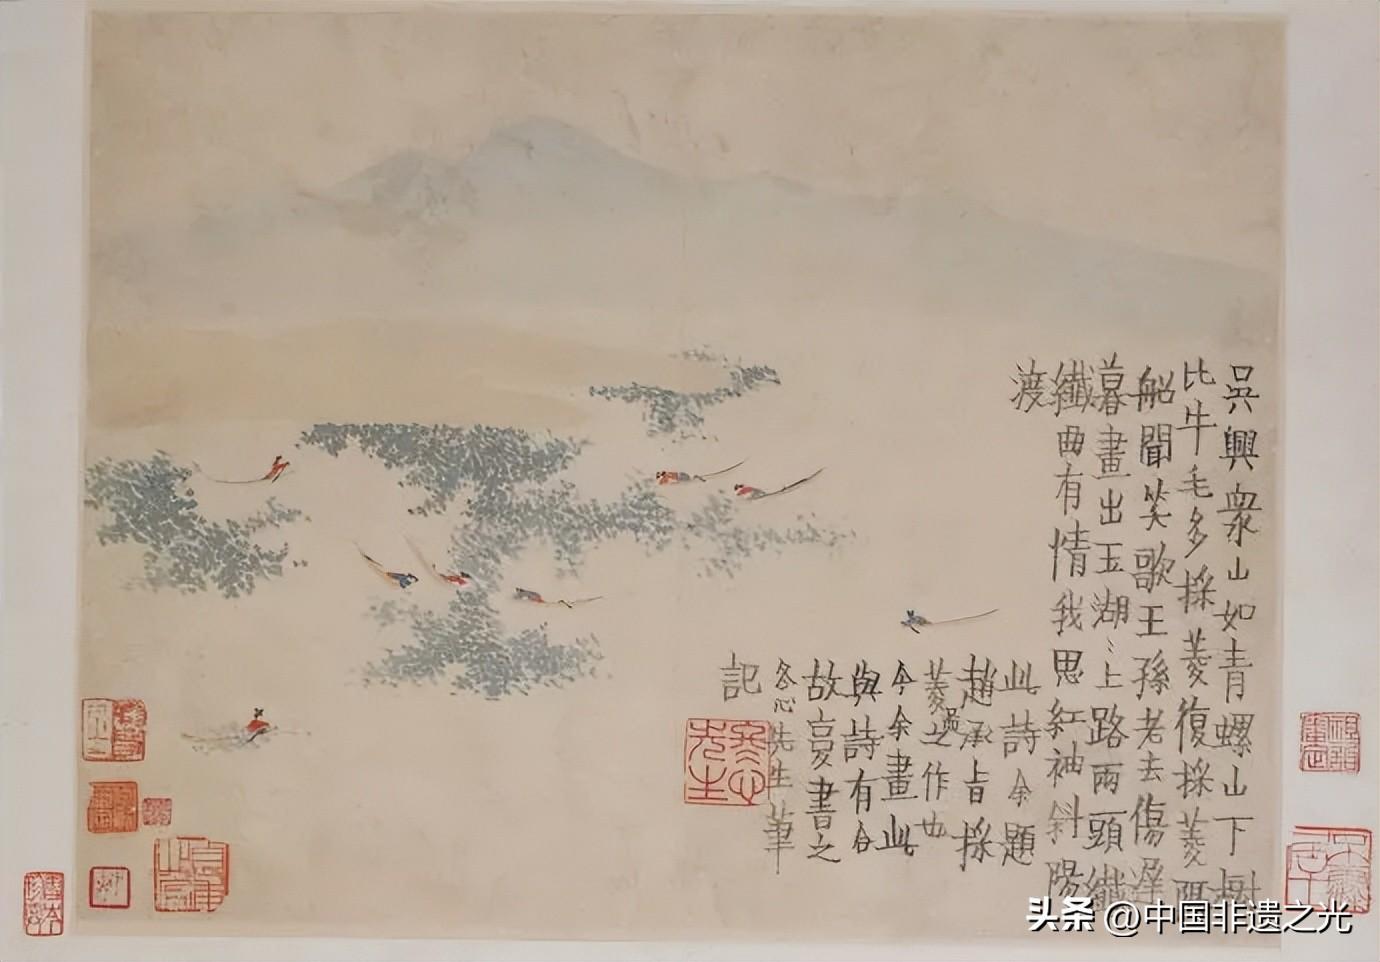 吳興眾山如青螺山下樹
比牛毛多採菱復採菱隔
船聞笑歌王孫老去傷遲
暮畫出玉湖〻上路兩頭纖
纖曲有情我思紅袖斜陽
渡
此詩余題
趙承旨採
菱啚之作也
今余畫此
與詩有合
故复書之
冬心先生筆
記
冬心先生
头条 @中国非遗之光